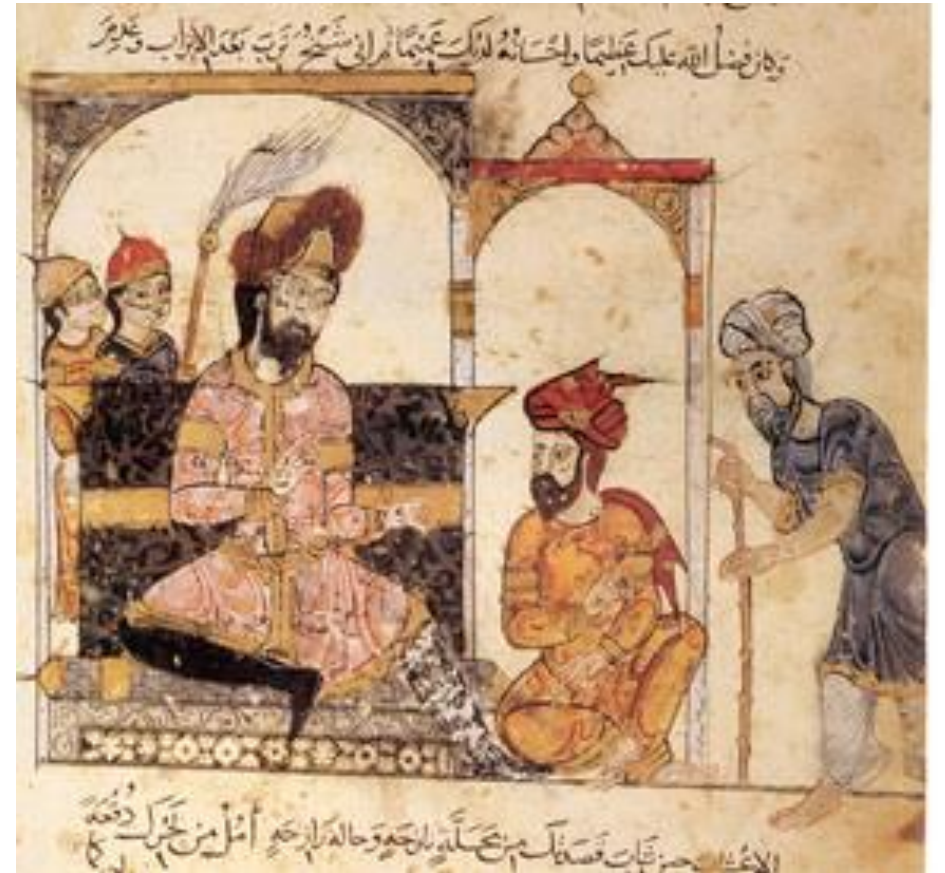 وَكَانَ فَضْلُ اللهِ عَلَيْكَ عَظِيمًا وَاحْسَانُهُ لَدَيْكَ عَمِيمًا ثُمَّ انِى شَيْخٌ تَرِبَ بَعْدَ الاِتْرَابِ وَعَدِمَ
الاعْشَابَ حِينَ شَابَ قَصَدْتُكَ مِنْ مَحَلَّةٍ نَازِحَةٍ وَحَالَةٍ رَازِحَةٍ آمُلُ مِنْ بَحْرِكَ دُفْعَةً